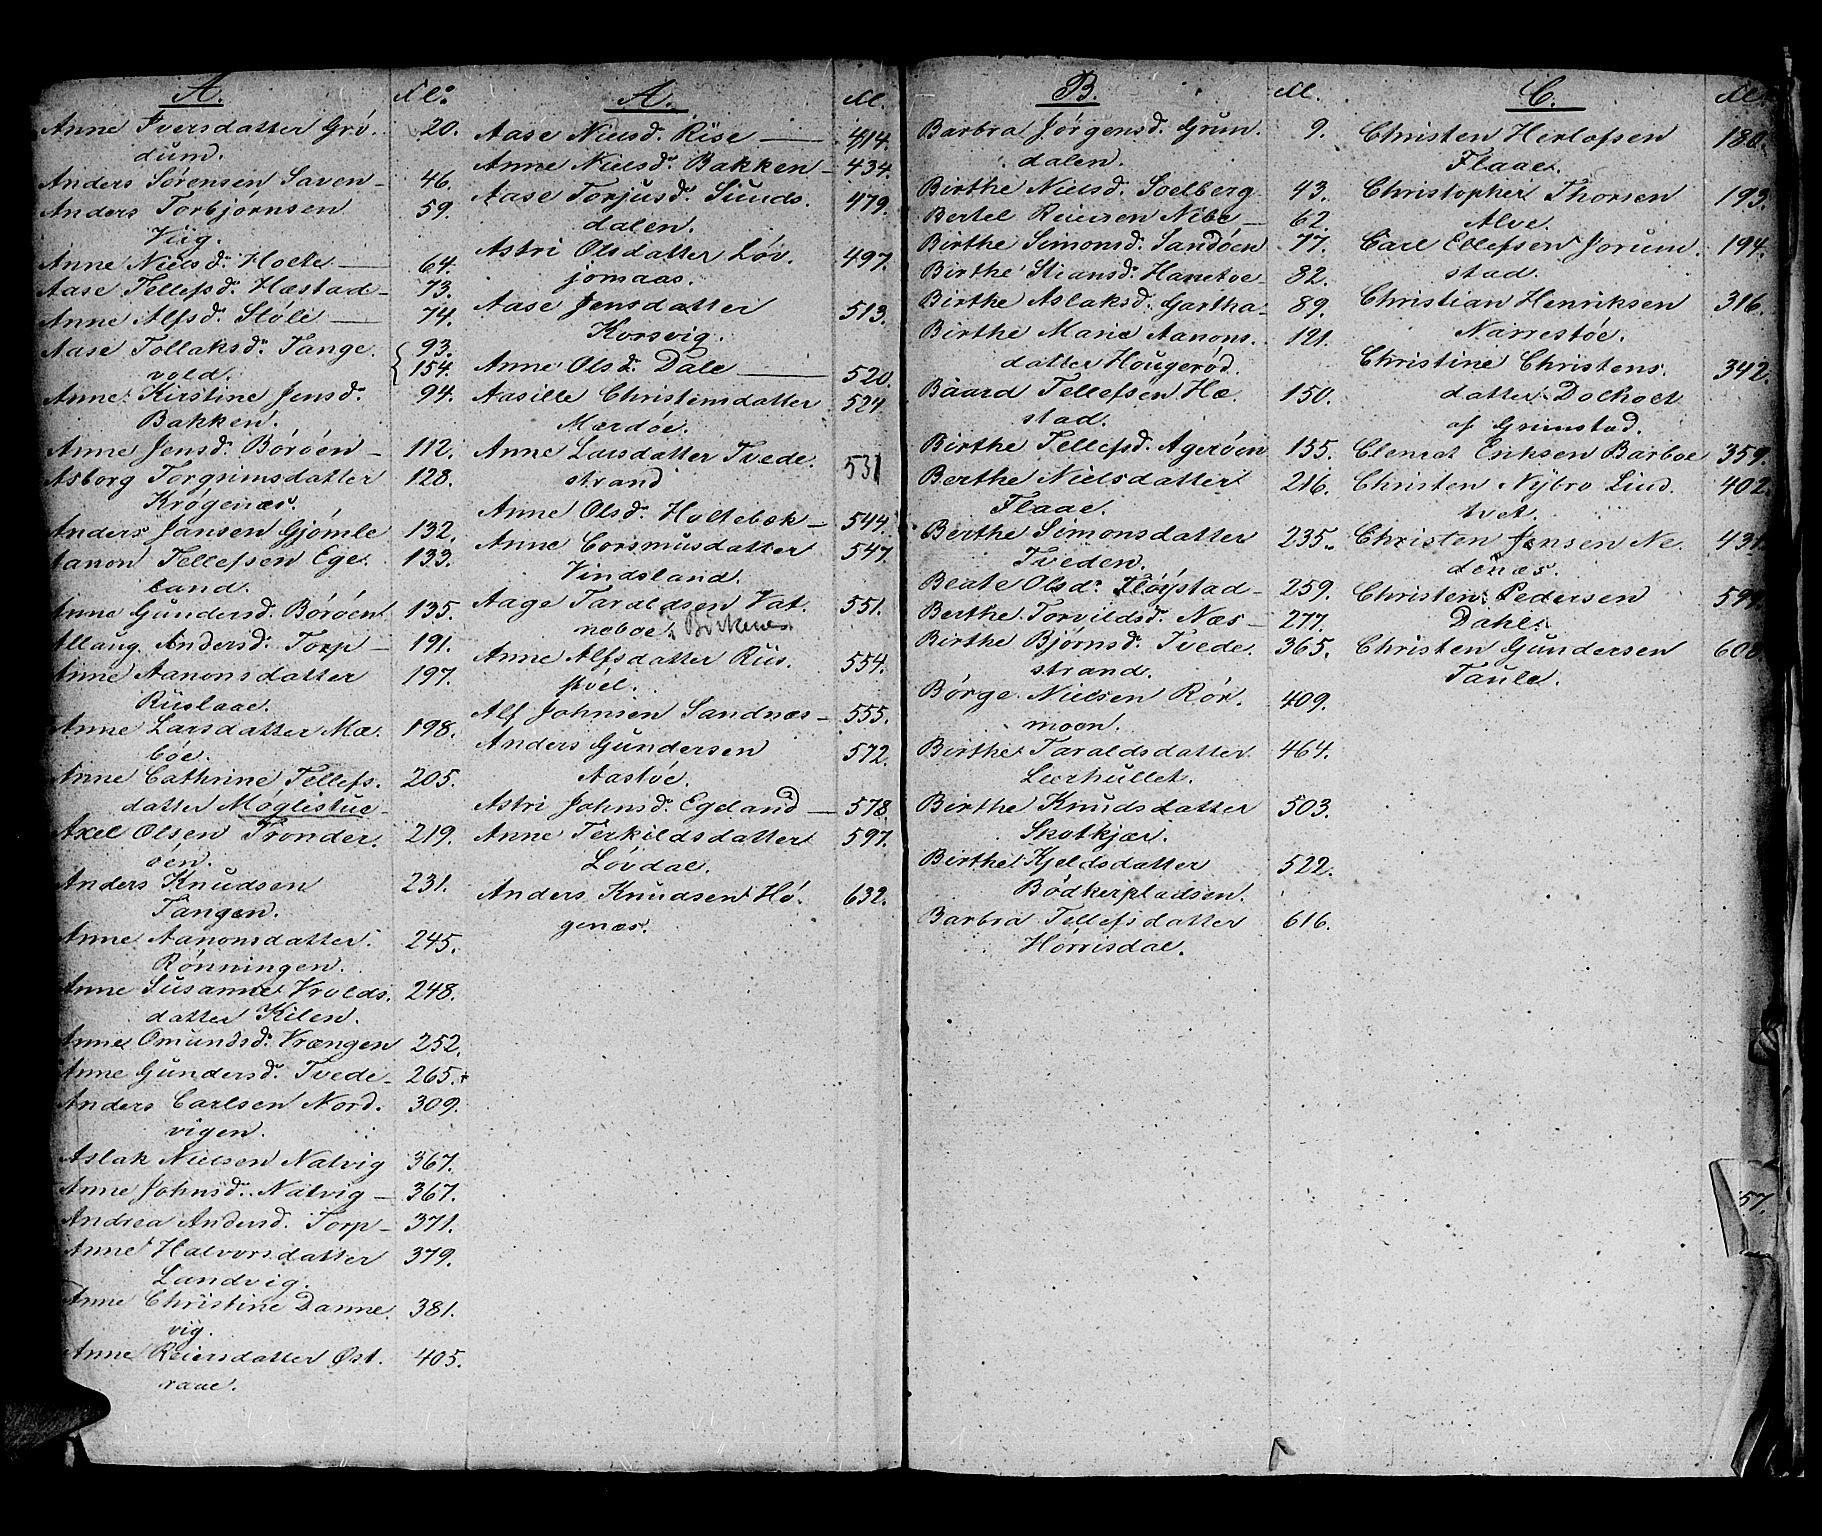 A. No.
Anne Iversdatter Grö. 20.
dum.
Anders Sørensen Saven 46.
Anders Torbjørnsen 59.
Viig.
Anne Nielsd. Holte 64.
Aase Tellefsd. Hæstad 73.
Anne Alfsd. Støle 74.
Aase Tollaksd. Tange. 93.
vold. 154.
Anne Kirstine Jensd. 94.
Bakken.
Anne Jensd. Børøen 112.
Asborg Torgrimsdatter 128.
Krøgenæs.
Anders Jansen Gjømle 132.
Aanon Tellefsen Ege. 133.
land.
Anne Gundersd. Børøen 135.
Allaug Andersd. Torp 191.
Anne Aanonsdatter 197.
Riislaae.
Anne Larsdatter Mæ. 198.
løe.
Anne Cathrine Tellefs. 205.
datter Møglestue
Axel Olsen Trønder. 219.
sen.
Anders Knudsen 231.
Tangen.
Anne Aanonsdatter 245.
Rønningen.
Anne Susanne Vrolds. 248.
datter Kilen.
Anne Omundsd. Vrængen 252.
Anne Gundersd. Tvede 265.
Anders Carlsen Nord. 309.
vigen.
Aslak Nielsen Natvig 367.
Anne Johnsd. Natvig 367.
Andrea Andersd. Torp 371.
Anne Halvorsdatter 379.
Landvig.
Anne Christine Danne. 381.
vig.
Anne Reiersdatter Øst. 405.
raae.
A. No.
Aase Nielsd. Riise 414.
Anne Nielsd. Bakken 434.
Aase Torjusd. Sunds. 479.
dalen.
Astri Olsdatter Løv. 497.
jomaas.
Aase Jensdatter 513.
Korsvig.
Anne Olsd. Dale 520.
Aasille Christensdatter 524.
Mærdøe.
Anne Larsdatter Tvede. 531
strand
Anne Olsd. Holtebæk 544.
Anne Corsmusdatter 547.
Vindsland.
Aage Taraldsen Vat. 551.
neboe i Birkenes
Anne Alfsdatter Riis. 554.
støel.
Alf Johnsen Sandnæs 555.
Anders Gundersen 572.
Aastøe.
Astri Johnsd. Egeland 578
Anne Terkildsdatter 597.
Løvdal.
Anders Knudsen Hø. 632.
genæs.
B. No.
Barbra Jørgensd. Grun. 9.
dalen.
Birthe Nielsd. Soelberg 43.
Bertel Reiersen Nibe 62.
Birthe Simonsd. Sandøen 77.
Birthe Stiansd. Hanetoe 82.
Birthe Aslaksd. Gartha 89.
Birthe Marie Aanons. 121.
datter Hougerød.
Baard Tellefsen Hæ. 150.
stad.
Birthe Tellefsd. Agerøen 155.
Berthe Nielsdatter 216.
Flaae.
Berthe Simonsdatter 235.
Tveden.
Beate Olsd. Fløystad 259.
Berthe Torvildsd. Næs 277.
Birthe Bjørnsd. Tvede. 365.
strand.
Børge Nielsen Rør. 409.
moen.
Birthe Taraldsdatter 464.
Leerhullet.
Birthe Knudsdatter 503.
Skotkjær.
Birthe Kjeldsdatter 522.
Bødkerpladsen.
Barbra Tellefsdatter 616.
Hørrisdal.
C. No.
Christen Herlofsen 180.
Flaae.
Christopher Thorsen 193.
Alve.
Carl Ellefsen Jorum. 194.
stad.
Christian Henriksen 316.
Narrestøe.
Christine Christens. 342.
datter Dolholt
af Grimstad.
Clemet Eriksen Barboe 359.
Christen Nybro Lind. 402.
tvet.
Christen Jensen Ne. 431.
denæs.
Christen Pedersen
Dahl.
Christen Gundersen
Taule.
57.